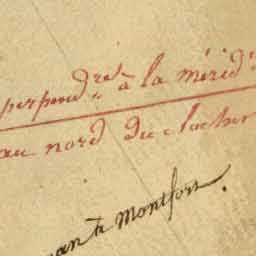 perpend.res à la mérid
au nord du clocher
à Montfort